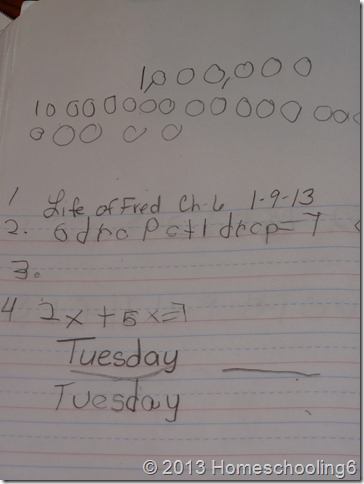 1,000,000
1000000000000000
00000
1 Life of Fred Ch. 6 1-9-13
2. 6
3.
4 2x + 5x=7
Tuesday
Tuesday
© 2013 Homeschooling6